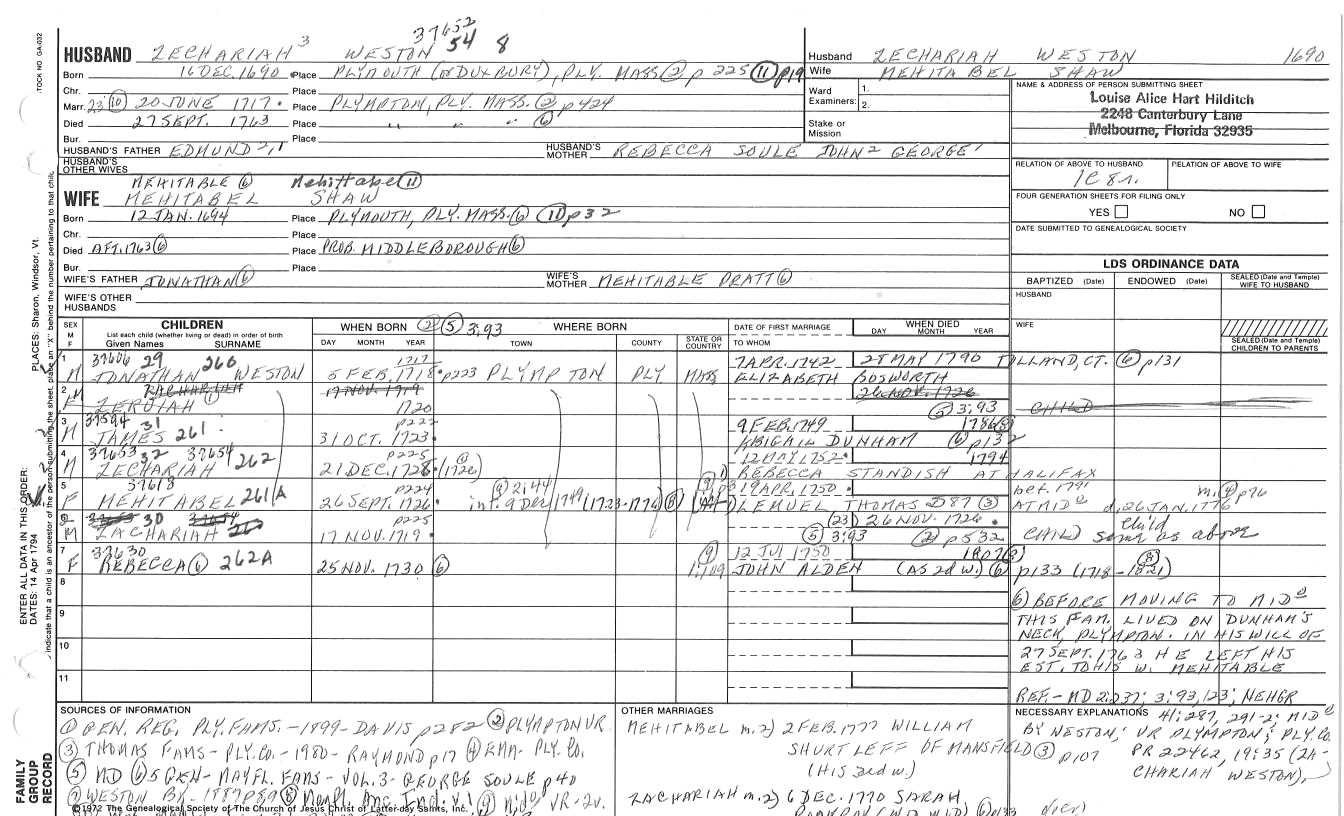 37652
HUSBAND ZECHARIAH 3 WESTON 54 8
Born 16 DEC. 1690 Place PLYMOUTH (or DUXBURY), PLY. MASS (2) p 225 (11) p19
Chr. Place
Marr. 23 (10) 20 JUNE 1717. Place PLYMPTON, PLY. MASS. (2) p424
Died 27 SEPT. 1763 Place " " " (6)
Bur. Place
HUSBAND'S FATHER EDMUND 2,1 HUSBAND'S MOTHER REBECCA SOULE JOHN 2 GEORGE 1
HUSBAND'S OTHER WIVES
MEHITABLE (6) Mehittabel (11)
WIFE MEHITABEL SHAW
Born 12 JAN. 1694 Place PLYMOUTH, PLY. MASS. (6) (11) p32
Chr. Place
Died AFT. 1763 (6) Place PROB. MIDDLEBOROUGH (6)
Bur. Place
WIFE'S FATHER JONATHAN (6) WIFE'S MOTHER MEHITABLE PRATT (6)
WIFE'S OTHER HUSBANDS
Husband ZECHARIAH WESTON 1690
Wife MEHITABEL SHAW
Ward Examiners: 1. 2.
Stake or Mission
NAME & ADDRESS OF PERSON SUBMITTING SHEET
Louise Alice Hart Hilditch
2248 Canterbury Lane
Melbourne, Florida 32935
RELATION OF ABOVE TO HUSBAND RELATION OF ABOVE TO WIFE
1C 8r.
FOUR GENERATION SHEETS FOR FILING ONLY
YES NO
DATE SUBMITTED TO GENEALOGICAL SOCIETY
LDS ORDINANCE DATA
BAPTIZED (Date) ENDOWED (Date) SEALED (Date and Temple) WIFE TO HUSBAND
HUSBAND
WIFE
SEALED (Date and Temple) CHILDREN TO PARENTS
SEX M F CHILDREN List each child (whether living or dead) in order of birth Given Names SURNAME
WHEN BORN (2) (5) 3:93 WHERE BORN
DAY MONTH YEAR TOWN COUNTY STATE OR COUNTRY
DATE OF FIRST MARRIAGE TO WHOM WHEN DIED DAY MONTH YEAR
1 37606 29 260 1717 7 APR. 1742 25 MAY 1790 TOLLAND, CT. (6) p131
M JONATHAN WESTON 5 FEB. 1718 p223 PLYMPTON PLY MASS ELIZABETH BOSWORTH
2 M ZACHARIAH 17 NOV. 1719 26 NOV. 1726
F ZERUIAH (1) 1720 (5) 3:93 CHILD
3 37594 31 p222 9 FEB. 1749 1786 (8)
M JAMES 261 31 OCT. 1723 ABIGAIL DUNHAM (6) p132
4 37653 32 37654 262 p225 12 MAY 1752 1794
M ZECHARIAH 21 DEC. 1728 (1726) REBECCA STANDISH AT HALIFAX
5 37618 p224 (9) 2:44 19 APR. 1750 bet. 1791 m. (9) p76
F MEHITABEL 261A 26 SEPT. 1726 int. 9 Dec 1749 (1723-1776) (8) LEMUEL THOMAS D87 (3) AT MID d. 26 JAN. 1776
30 p225 (23) 26 NOV. 1726
M ZACHARIAH 17 NOV. 1719 (5) 3:93 (2) p532 CHILD Child same as above
7 37630 (9) 12 JUL 1750 1807 (8)
F REBECCA (6) 262A 25 NOV. 1730 (6) 1:109 JOHN ALDEN (AS 2d W.) (6) p133 (1718-1821)
8
9
10
11
(6) BEFORE MOVING TO MID
THIS FAM. LIVED ON DUNHAM'S
NECK, PLYMPTON. IN HIS WILL OF
27 SEPT. 1763 HE LEFT HIS
EST. TO HIS W. MEHITABLE
REF. - MD 2:237; 3:93, 123; NEHGR
NECESSARY EXPLANATIONS 41:287, 291-2; MID
BY WESTON; VR PLYMPTON; PLY. CO.
PR 22462, 19:35 (ZA-
CHARIAH WESTON),
SOURCES OF INFORMATION
(1) GEN. REG. PLY. FAMS. - 1899 - DAVIS p282 (2) PLYMPTON VR
(3) THOMAS FAMS - PLY. CO. - 1980 - RAYMOND p17 (4) PLY. CO.
(5) MD (6) 5 GEN - MAYFL. FAMS - VOL. 3 - GEORGE SOULE p40
(7) WESTON BY - 1887 p59 (8) Mayfl. Ind. v. 1 (9) Mid VR - 2v.
©1972 The Genealogical Society of The Church of Jesus Christ of Latter-day Saints, Inc.
OTHER MARRIAGES
MEHITABEL m. 2) 2 FEB. 1777 WILLIAM
SHURTLEFF OF MANSFIELD (3) p107
(HIS 3rd W.)
ZACHARIAH m. 2) 6 DEC. 1770 SARAH
(6) p133
STOCK NO. GA-032
PLACES: Sharon, Windsor, Vt.
ENTER ALL DATA IN THIS ORDER:
DATES: 14 Apr 1794
FAMILY GROUP RECORD